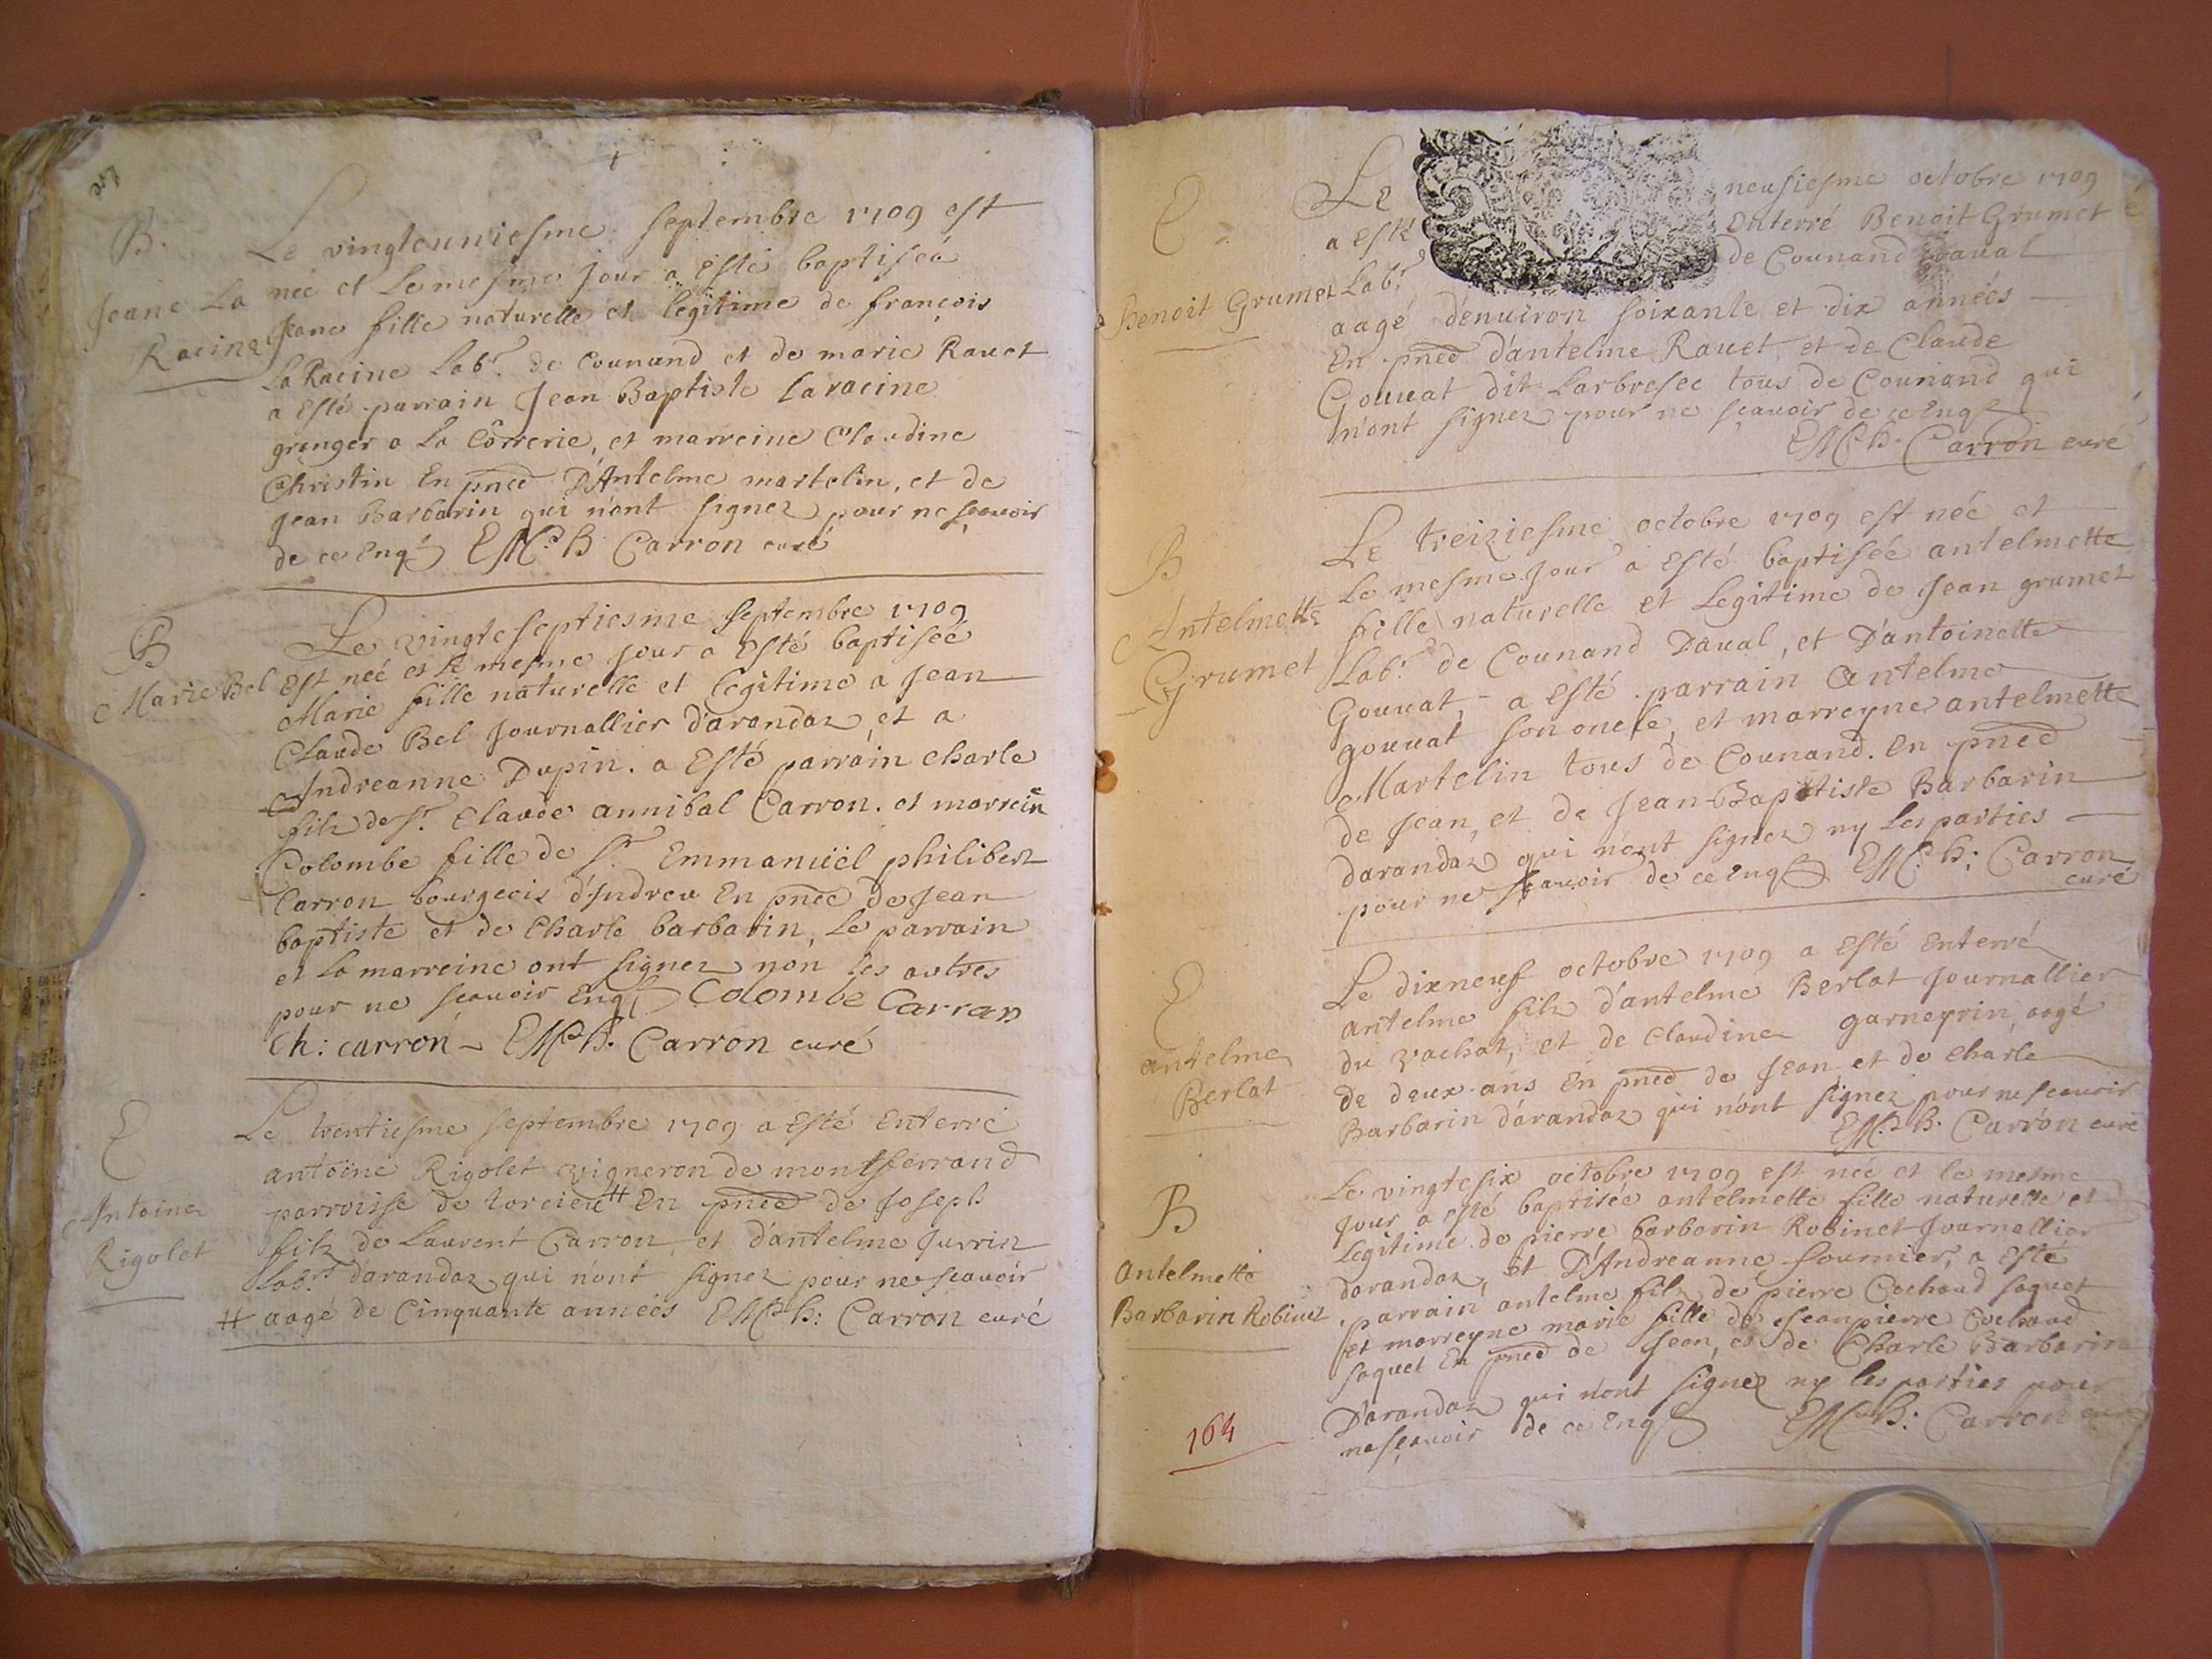 B.
Jeane La
Racine
Le vingteuniesme septembre 1709 est
née et le mesme jour a esté baptiseé
Jeane fille naturelle et legitime de françois
La Racine Labr. de Counand et de marie Rauet
a esté parrain Jean Baptiste Laracine
granger a La Correrie, et marreine Claudine
Christin En pnce D'Antelme martelin, et de
Jean Barbarin qui n'ont signez pour ne scauoir
de ce Enq EMPh Carron curé
B
Marie Bel
Le vingte septiesme septembre 1709
Est née et le mesme jour a Esté baptiseé
Marie fille naturelle et legitime a Jean
Claude Bel Journallier d'arandaz, et a
Andreanne Dupin. a Esté parrain charle
filz de Sr. Claude annibal Carron. et marreine
Colombe fille de Sr Emmanuël philibert
Carron bourgeois d'Indreu En pnce de Jean
baptiste et de Charle barbarin, Le parrain
et La marreine ont signez non les autres
pour ne scauoir Enq Colombe Carran
Ch: carron - EMPh. Carron curé
E
Antoine
Rigolet
Le trentiesme septembre 1709 a Esté Enterré
antoine Rigolet vigneron de montferrand
parroisse de torcieu # En pnce de Joseph
filz de Laurent Carron, et d'antelme Jurrin
Labrs. d'arandaz qui n'ont signez pour ne scauoir
# aagé de Cinquante années EMPh: Carron curé
E
Benoit Grumet
Le neufiesme octobre 1709
a Esté Enterré Benoit Grumet
Labr. de Counand Daual
aagé d'enuiron soixante et dix années
En pnce d'antelme Rauet, et de Claude
Gouuat dit Larbresec tous de Counand qui
n'ont signez pour ne sçauoir de ce Enq
EMPh. Carron curé
B
Antelmette
Grumet
Le treiziesme octobre 1709 est née et
Le mesme Jour a Esté baptisée antelmette
fille naturelle et Legitime de Jean grumet
Labr. de Counand Daual, et D'antoinette
Gouuat, - a Esté parrain Antelme
gouuat son oncle, et marreyne antelmette
Martelin tous de Counand. En pnce
de Jean, et de Jean-Baptiste Barbarin
darandaz qui n'ont signez ny Les parties
pour ne scauoir de ce Enq EMPh: Carron
curé
E
antelme
Berlat
Le dixneuf octobre 1709 a Esté Enterré
antelme filz d'antelme Berlat Journallier
du vachat, et de Claudine garneyrin, aagé
de deux ans En pnce de Jean et de charle
Barbarin d'arandaz qui n'ont signez pour ne scauoir
EMPh. Carron curé
B
Antelmette
Barbarin Robinet
Le vingtesix octobre 1709 est née et le mesme
Jour a esté baptisée antelmette fille naturelle et
Legitime de pierre barbarin Robinet Journallier
darandaz, et D'Andreanne fournier, a Esté
parrain antelme filz de pierre Cochoud saquet
et marreyne marie fille de Jean pierre Cochoud
saquet En pnce de Jean, et de Charle Barbarin
D'arandaz qui n'ont signez ny les parties pour
ne scauoir de ce Enq EMPh: Carron curé
164